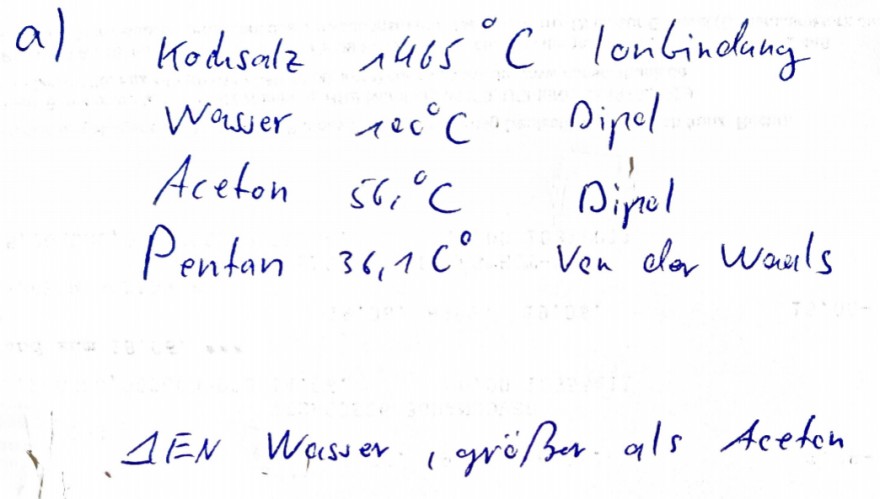 a) Kochsalz 1465 °C Ionbindung
Wasser 100°C Dipol
Aceton 56,°C Dipol
Pentan 36,1 C° Van der Waals
ΔEN Wasser, größer als Aceton